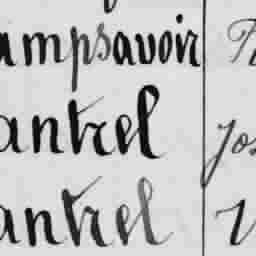 ampsavoir
antrel Jos
antrel V